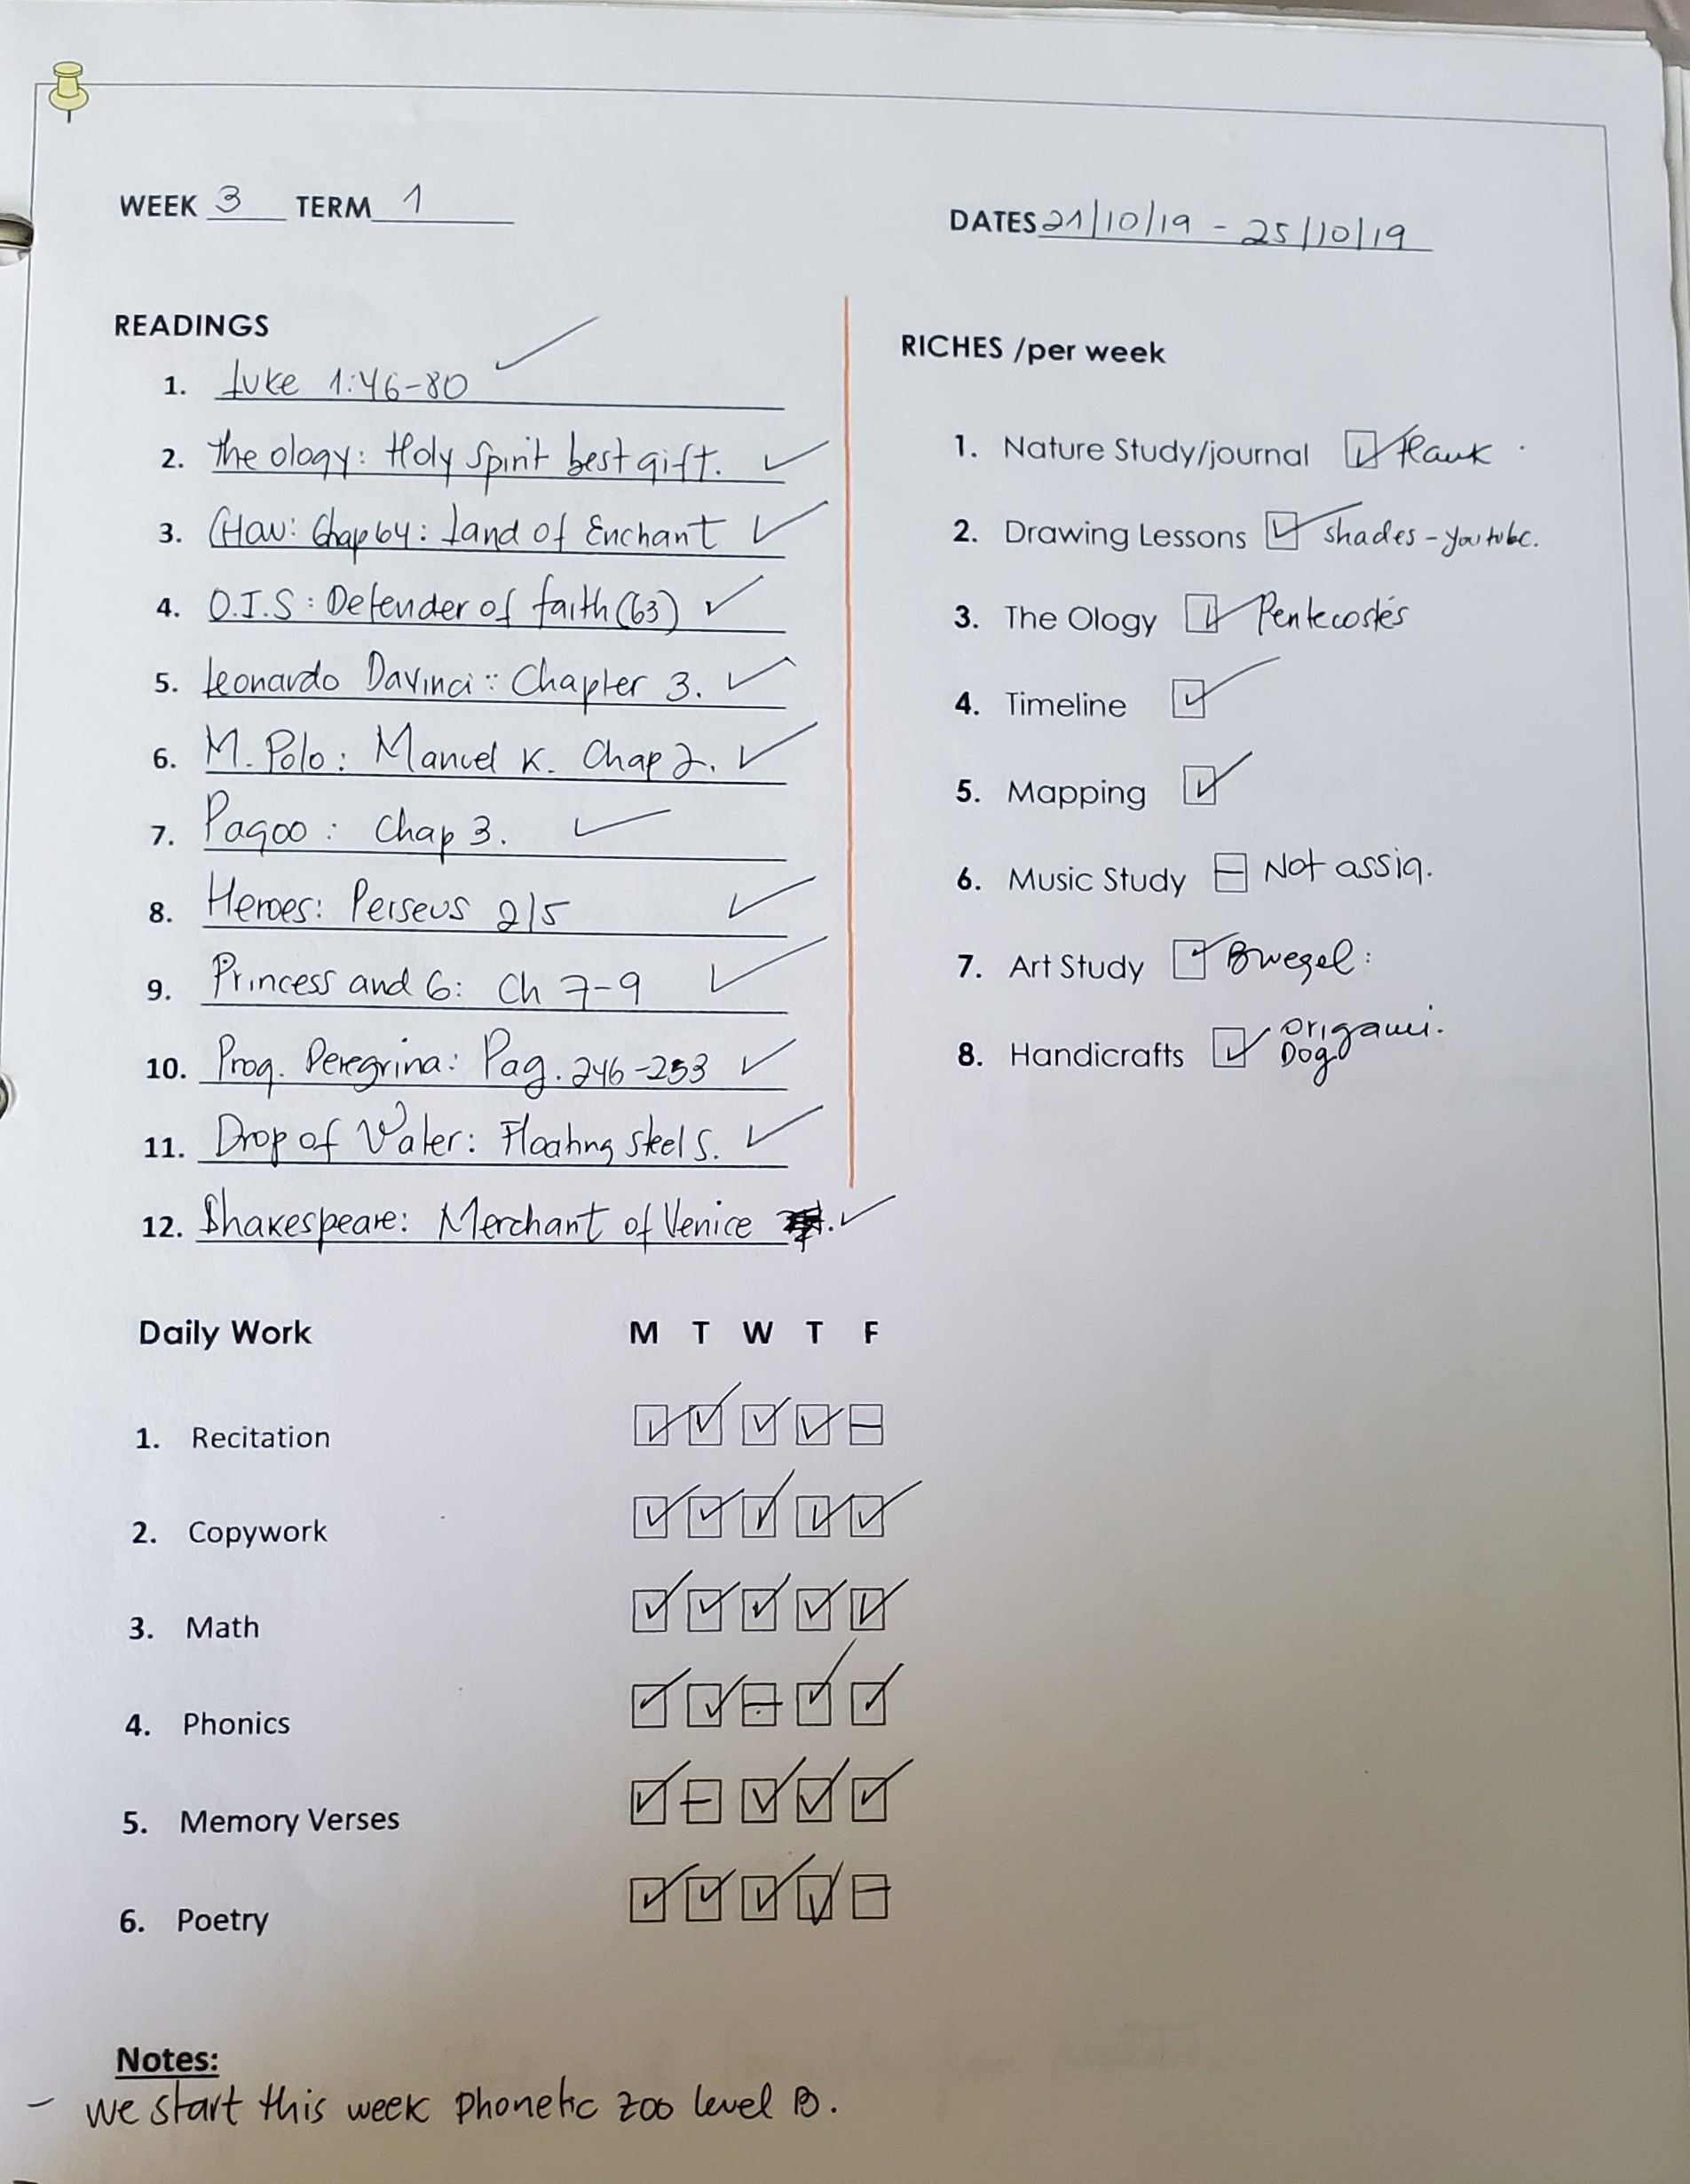 WEEK 3 TERM 1
DATES 21/10/19 - 25/10/19
READINGS
1. Luke 1:46-80
2. the ology: Holy Spirit best gift.
3. CHOW: Chap 64: Land of Enchant
4. O.I.S: Defender of faith (63)
5. Leonardo Davinci: Chapter 3.
6. M. Polo: Manuel K. Chap 2.
7. Pagoo: Chap 3.
8. Heroes: Perseus 2/5
9. Princess and G: Ch 7-9
10. Prog. Peregrina: Pag. 246-253
11. Drop of Water: Floating steel S.
12. Shakespeare: Merchant of Venice
RICHES /per week
1. Nature Study/journal ✓ Hawk
2. Drawing Lessons ✓ shades - youtube.
3. The Ology ✓ Pentecostés
4. Timeline ✓
5. Mapping ✓
6. Music Study Not assig.
7. Art Study ✓
8. Handicrafts ✓ Origami.
Dog
Daily Work M T W T F
1. Recitation
2. Copywork
3. Math
4. Phonics
5. Memory Verses
6. Poetry
Notes:
- we start this week phonetic zoo level B.